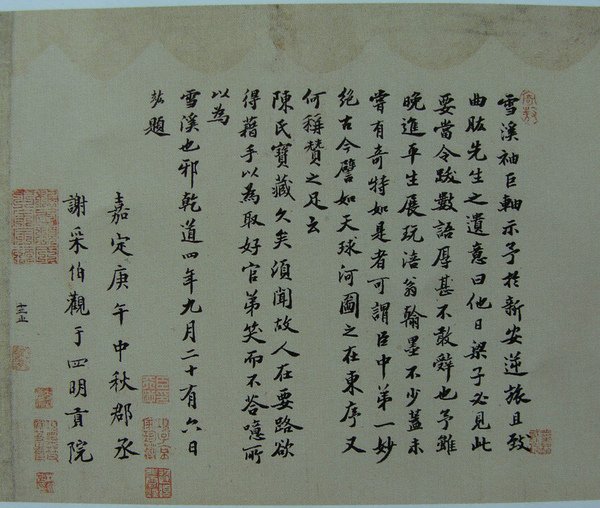 雪溪袖巨軸示予於新安逆旅且致
曲肱先生之遺意曰他日梁子必見此
要當令跋數語厚甚不敢辭也予雖
晚進平生展玩涪翁翰墨不少蓋未
嘗有奇特如是者可謂臣中第一妙
絕古今譬如天球河圖之在東序又
何稱贊之足云
陳氏寶藏久矣須聞故人在要路欲
得藉手以為取好官弟笑而不答噫所
以為
雪溪也邪乾道四年九月二十有六日
題
嘉定庚午中秋郡丞
謝采伯觀于四明貢院